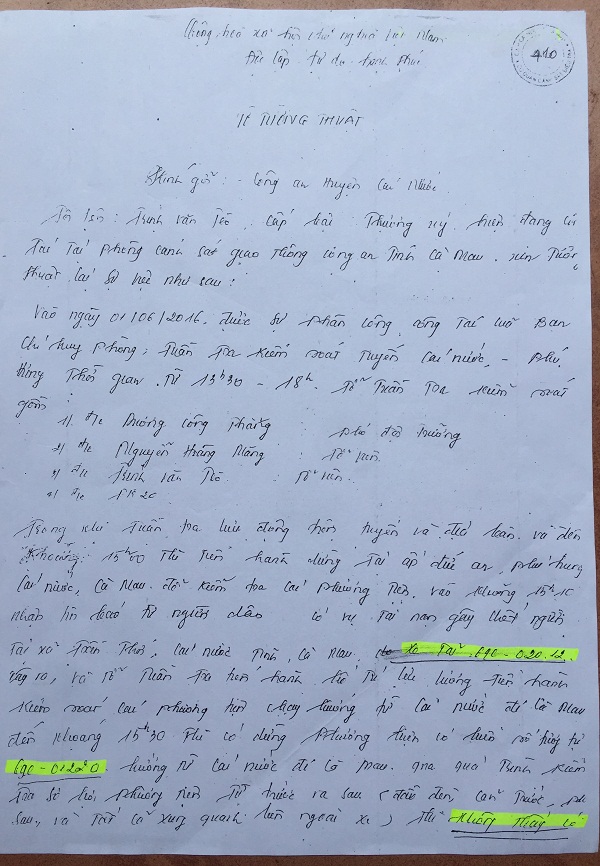 Cộng hòa xã hội chủ nghĩa Việt Nam
Độc lập tự do hạnh phúc
410
TỜ TƯỜNG THUẬT
Kính gửi : - Công an huyện Cái Nước.
Tôi tên : Trịnh Văn cấp bậc : Thượng úy, hiện đang
tại phòng cảnh sát giao thông công an tỉnh Cà Mau. xin tường
thuật lại sự việc như sau :
Vào ngày 01/06/2016. được sự phân công công tác của Ban
Chỉ huy phòng, Tuần tra kiểm soát tuyến Cái nước, - phú
thời gian từ 13h30 - 18h. tổ Tuần tra kiểm soát
gồm
1/ đ/c Dương Công : phó đội trưởng
2/ đ/c Nguyễn Hoàng : Tổ viên
3/ đ/c Trịnh Văn : Tổ viên.
4/ đ/c
Trong khi Tuần tra lưu động trên tuyến và địa bàn. và đến
khoảng 15h00 thì tiến hành dừng tại ấp phú hưng
Cái nước, Cà Mau. để kiểm tra các phương tiện. vào khoảng 15h10
nhận tin báo từ người dân có vụ tai nạn gây chết người
Tại xã Cái nước Tỉnh, Cà Mau, xe tải 69C-020.12.
và tổ Tuần tra tiến hành tiến hành
kiểm soát các phương tiện chạy hướng từ Cái nước đi Cà Mau
đến khoảng 15h30 thì có dừng phương tiện có biển số
69C-01220. hướng từ Cái nước đi Cà Mau. qua quá trình kiểm
tra phương tiện từ trước ra sau ( cản trước,
sau, và tất cả xung quanh bên ngoài xe ) thì không thấy có